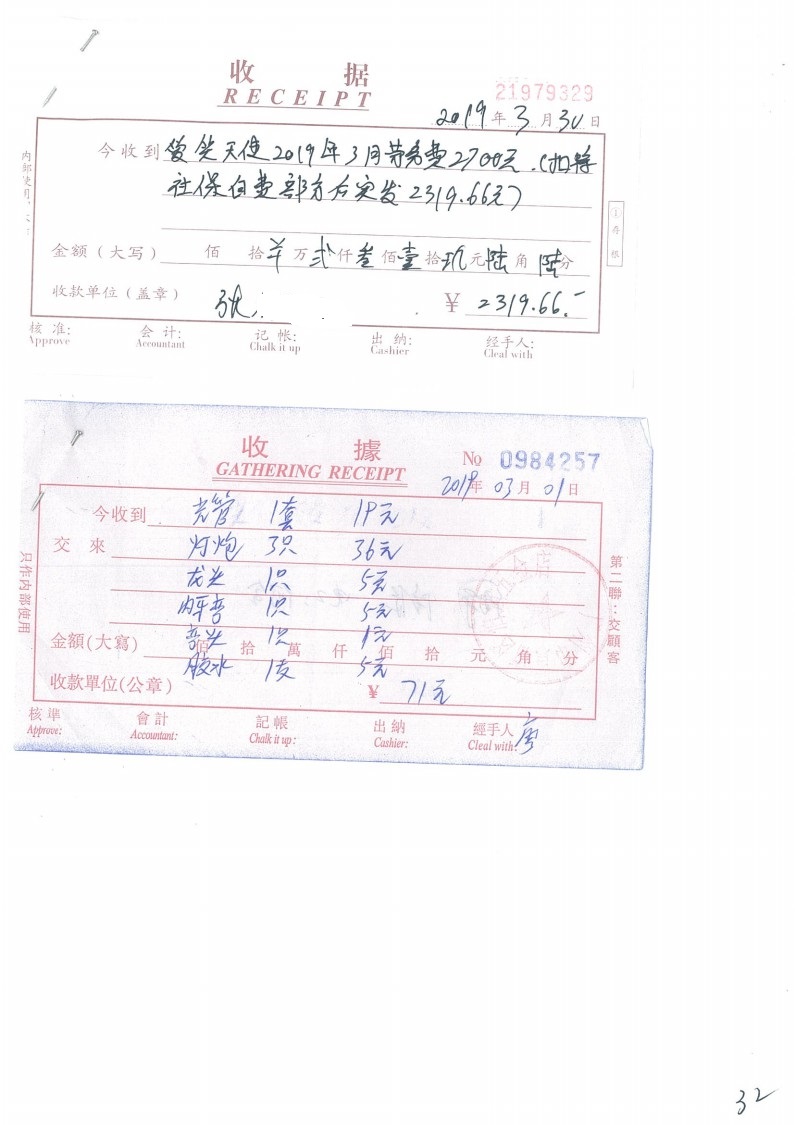 收 据
RECEIPT
21979329
2019 年 3 月 30 日
今收到 爱笑天使2019年3月劳务费2700元.(扣除
社保自费部分后实发2319.66元)
金额(大写) 佰 拾 羊 万 贰 仟 叁 佰 壹 拾 玖 元 陆 角 陆 分
收款单位(盖章) 张 ¥ 2319.66.-
内部使用
①存根
核 准: 会 计: 记 帐: 出 纳: 经手人:
Approve Accountant Chalk it up Cashier Cleal with
收 據
GATHERING RECEIPT
No 0984257
2019 年 03 月 01 日
今收到 光管 1套 19元
交 來 灯炮 3只 36元
龙头 1只 5元
内牙弯 1只 5元
弯头 1只 1元
金額(大寫) 佰 拾 萬 仟 佰 拾 元 角 分
胶水 1支 5元
收款單位(公章) ¥ 71元
只作内部使用
第二聯:交顧客
核 準 會 計 記 帳 出 納 經手人
Approve: Accountant: Chalk it up: Cashier: Cleal with 唐
32